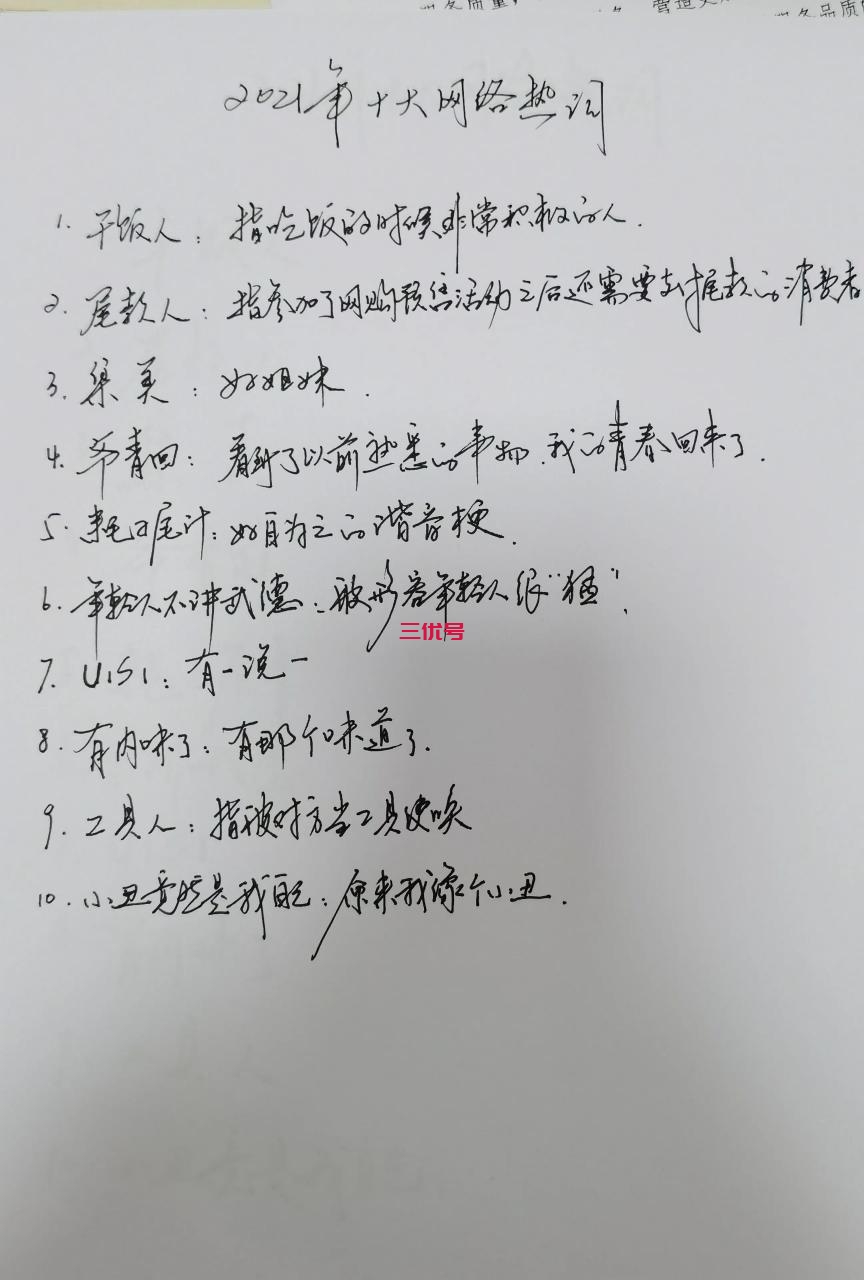 2021年十大网络热词
1. 干饭人：指吃饭的时候非常积极的人.
2. 尾款人：指参加了网购预售活动之后还需要支付尾款的消费者
3. 集美：好姐妹.
4. 爷青回：看到了以前熟悉的事物.我的青春回来了.
5. 耗子尾汁：好自为之的谐音梗.
6. 年轻人不讲武德：被形容年轻人很"猛".
三优号
7. U1S1：有一说一
8. 有内味了：有那个味道了.
9. 工具人：指被对方当工具使唤
10. 小丑竟然是我自己：原来我像个小丑.